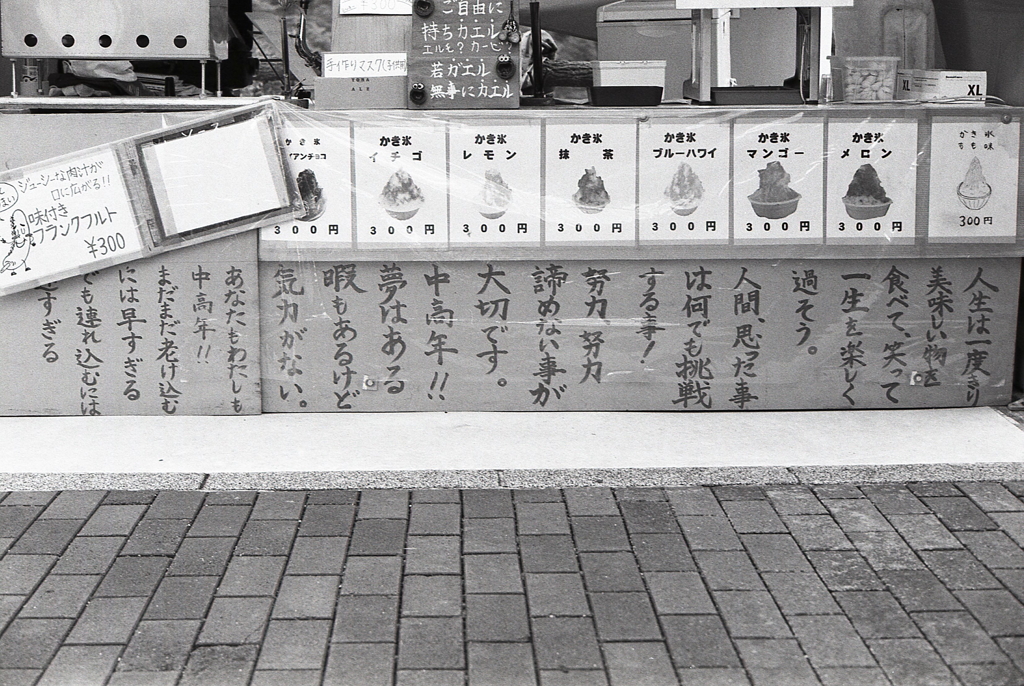 ¥300
ご自由に
持ちカエル
エルそ?カービ!
若ガエル
無事にカエル
手作りマスク(子供用)
XL
XL
ジューシーな肉汁が
口に広がる!!
味付き
フランクフルト
¥300
イアンチョコ
300円
かき氷
イチゴ
300円
かき氷
レモン
300円
かき氷
抹茶
300円
かき氷
ブルーハワイ
300円
かき氷
マンゴー
300円
かき氷
メロン
300円
かき氷
もも味
300円
人生は一度きり
美味しい物を
食べて、笑って
一生を楽しく
過そう。
人間、思った事
は何でも挑戦
する事!
努力、努力
諦めない事が
大切です。
中高年!!
夢はある
暇もあるけど
気力がない。
あなたもわたしも
中高年!!
まだまだ老け込む
には早すぎる
でも連れ込むには
すぎる